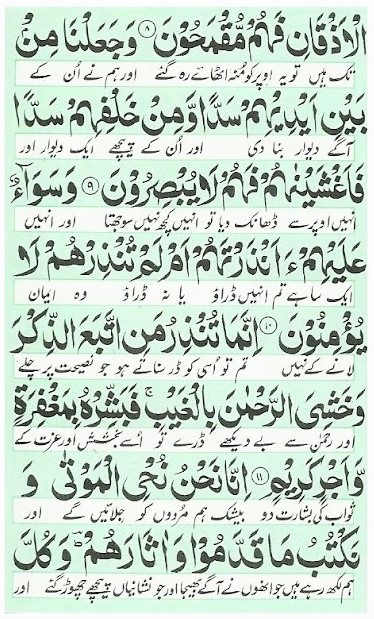 الْاَذْقَانِ فَهُمْ مُّقْمَحُوْنَ ۸ وَجَعَلْنَا مِنْۢ
تک ہیں تو یہ اوپر کو منہ اٹھائے رہ گئے اور ہم نے اُن کے
بَيْنِ اَيْدِيْهِمْ سَدًّا وَّمِنْ خَلْفِهِمْ سَدًّا
آگے دیوار بنا دی اور اُن کے پیچھے ایک دیوار اور
فَاَغْشَيْنٰهُمْ فَهُمْ لَا يُبْصِرُوْنَ ۹ وَسَوَآءٌ
انہیں اوپر سے ڈھانک دیا تو انہیں کچھ نہیں سوجھتا اور انہیں
عَلَيْهِمْ ءَاَنْذَرْتَهُمْ اَمْ لَمْ تُنْذِرْهُمْ لَا
ایک سا ہے تم انہیں ڈراؤ یا نہ ڈراؤ وہ ایمان
يُؤْمِنُوْنَ ۱۰ اِنَّمَا تُنْذِرُ مَنِ اتَّبَعَ الذِّكْرَ
لانے کے نہیں تم تو اُسی کو ڈر سناتے ہو جو نصیحت پر چلے
وَخَشِيَ الرَّحْمٰنَ بِالْغَيْبِ ۚ فَبَشِّرْهُ بِمَغْفِرَةٍ
اور رحمٰن سے بے دیکھے ڈرے تو اُسے بخشش اور عزت کے
وَّاَجْرٍ كَرِيْمٍ ۱۱ اِنَّا نَحْنُ نُحْيِ الْمَوْتٰى وَ
ثواب کی بشارت دو بیشک ہم مُردوں کو جلائیں گے اور
نَكْتُبُ مَا قَدَّمُوْا وَاٰثَارَهُمْ ؕ وَكُلَّ
ہم لکھ رہے ہیں جو انھوں نے آگے بھیجا اور جو نشانیاں پیچھے چھوڑ گئے اور